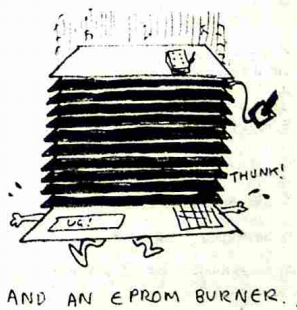 THUNK!
UG!
AND AN EPROM BURNER.